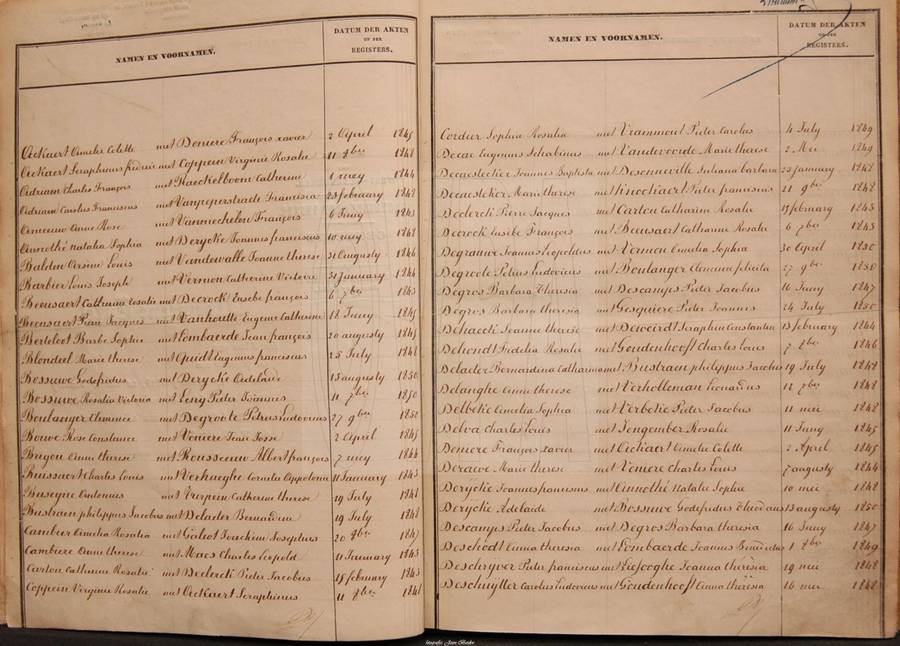 NAMEN EN VOORNAMEN. DATUM DER AKTEN OF DER REGISTERS.
Ackaert Amelie Colette met Deniere François xavier 2 April 1845
Ackaert Seraphinus met Coppein Virginie Rosalie 11 8bre 1848
Adriaen Charles François met Haeckelboom Catherine 1 mey 1844
Adriaen Carolus Franciscus met Vanpeperstraete Francisca 23 february 1848
Anne Rose met Vannechelen François 6 Juny 1845
Annothé natalie Sophia met Derycke Joannes franciscus 10 mey 1848
Baldin Louis met Vandewalle Joanne therese 31 Augusty 1846
Barbier Louis Joseph met Vernon Catherine Victoire 31 January 1844
Beeusaert Catherine Rosalie met Decrock Eusebe françois 6 7bre 1845
Beeusaert Pierre Jacques met Vanhoutte Eugenie Catherine 18 Juny 1845
Berteloot Barbe Sophie met Lombaerde Jean françois 20 augusty 1845
Blondeel Marie therese met Eugenius franciscus 25 July 1848
Bossuwe Godefridus met Derycke Adelaide 13 augusty 1850
Bossuwe Rosalia Victoria met Leny Pieter Joannes 11 7bre 1850
Boulanger Clemence met Degroote Petrus Ludovicus 27 9bre 1850
Bouwe Rose Constance met Jean Josse 2 April 1845
Anne therese met Rousseeuw Albert françois 7 mey 1844
Buissaert Charles Louis met Verhaeghe Cornelie Appolonia 11 January 1843
Buseyne met Catherine therese 19 July 1848
Bustraen philippus Jacobus met Delader Bernardina 19 July 1848
Cambier Amelia Rosalia met Galeot Joachim Josephus 20 9bre 1847
Cambiere Anne therese met Maes Charles Leopold 11 January 1843
Carton Catherine Rosalie met Declerck Pieter Jacobus 15 february 1843
Coppein Virginie Rosalie met Ackaert Seraphinus 11 8bre 1848
NAMEN EN VOORNAMEN. DATUM DER AKTEN OF DER REGISTERS.
Cordier Sophia Rosalia met Vrammout Pieter Carolus 4 July 1849
Decae Eugenius met Vandevoorde Marie therese 2 Mei 1849
Decaestecker Joannes Baptista met Desenneville Juliana barbara 23 january 1848
Decaestecker Marie therese met Pieter franciscus 11 9bre 1848
Declerck Pierre Jacques met Carton Catharina Rosalie 15 february 1843
Decrock Eusebe François met Beeusaert Catharina Rosalie 6 7bre 1845
Degrauwe Joannes Leopoldus met Vernon Amelia Sophia 30 April 1850
Degroote Petrus Ludovicus met Boulanger Clemence felicita 27 9bre 1850
Degros Barbara Theresia met Descamps Pieter Jacobus 16 Juny 1847
Degros Barbara theresia met Gesquiere Pieter Joannes 24 July 1850
Dehaeck Jeanne therese met Dewoirdt Seraphin Constantin 13 february 1844
Dehondt Fidelia Rosalie met Goudenhooft Charles Louis 7 8bre 1846
Delader Bernardina Catharina met Bustraen philippus Jacobus 19 July 1848
Delanghe Anne therese met Verholleman Leonardus 12 7bre 1848
Delbeke Amelia Sophia met Verbeke Pieter Jacobus 11 mei 1848
Delva Charles Louis met Jongember Rosalie 11 Juny 1845
Deniere François xavier met Ackaert Amelie Colette 2 April 1845
Deraeve Marie therese met Charles Louis 7 augusty 1844
Derycke Joannes franciscus met Annothé Natalie Sophie 10 mei 1848
Derycke Adelaide met Bossuwe Godefridus 13 augusty 1850
Descamps Pieter Jacobus met Degros Barbara theresia 16 Juny 1847
Deschodt Anna theresia met Lombaerde Joannes 1 8bre 1849
Deschryver Pieter franciscus met Liefooghe Joanna theresia 19 mei 1848
Deschuytter Carolus Ludovicus met Goudenhooft Anna theresia 16 mei 1848